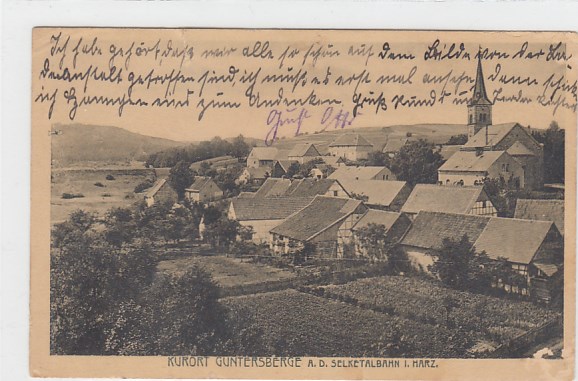 Ich habe gehört, daß wir alle so schön auf dem Bilde von der Ba
deanstalt getroffen sind, ich muß es erst mal ansehn. Dann schick
ich Hannchen eins zum Andenken. Gruß Kundt u.
Gruß Otto
KURORT GÜNTERSBERGE A. D. SELKETALBAHN I. HARZ.